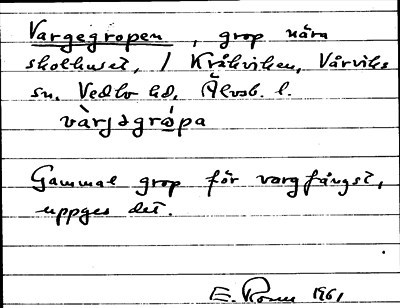 Vargegropen, grop nära
skolhuset, i Kråkviken, Vårviks
sn. Vedbo hd, Älvsb. l.
vàrjəgrópa
Gammal grop för vargfångst,
uppges det.
E. 1961